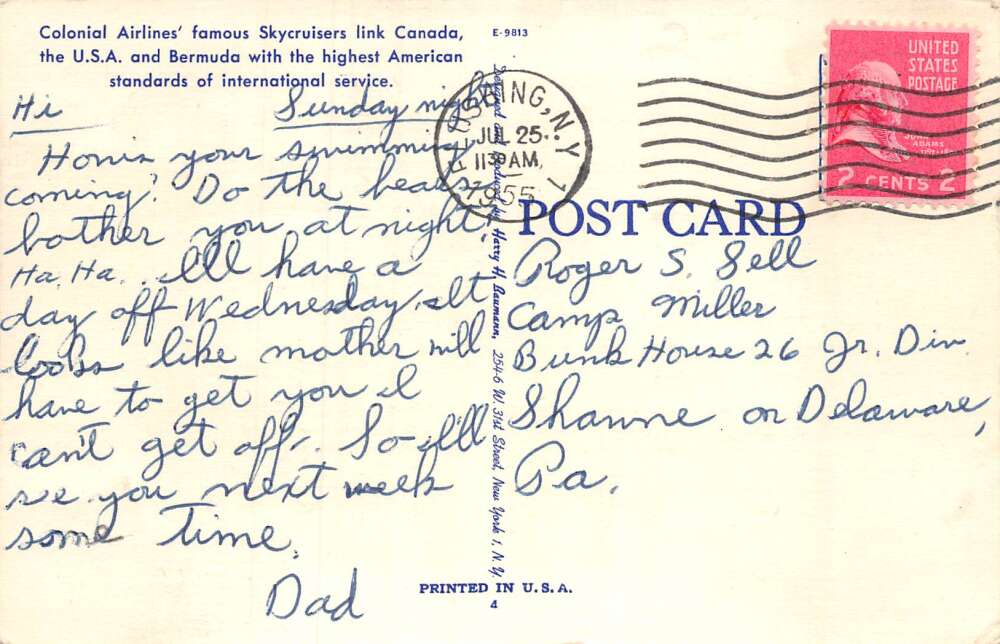 Colonial Airlines' famous Skycruisers link Canada,
the U.S.A. and Bermuda with the highest American
standards of international service.
E-9813
Hi Sunday night
How's your swimming
coming? Do the bears
bother you at night,
Ha, Ha... I'll have a
day off Wednesday. It
looks like mother will
have to get you I
can't get off. So I'll
see you next week
some time.
Dad
Designed and Produced by Harry H. Baumann, 254-6 W. 31st Street, New York 1, N. Y.
FLUSHING, N.Y.
JUL 25
11 30 AM
1955
1
UNITED
STATES
POSTAGE
JOHN
ADAMS
2 CENTS 2
POST CARD
Roger S. Sell
Camp Miller
Bunk House 26 Jr. Div.
Shawne on Delaware,
Pa.
PRINTED IN U.S.A.
4